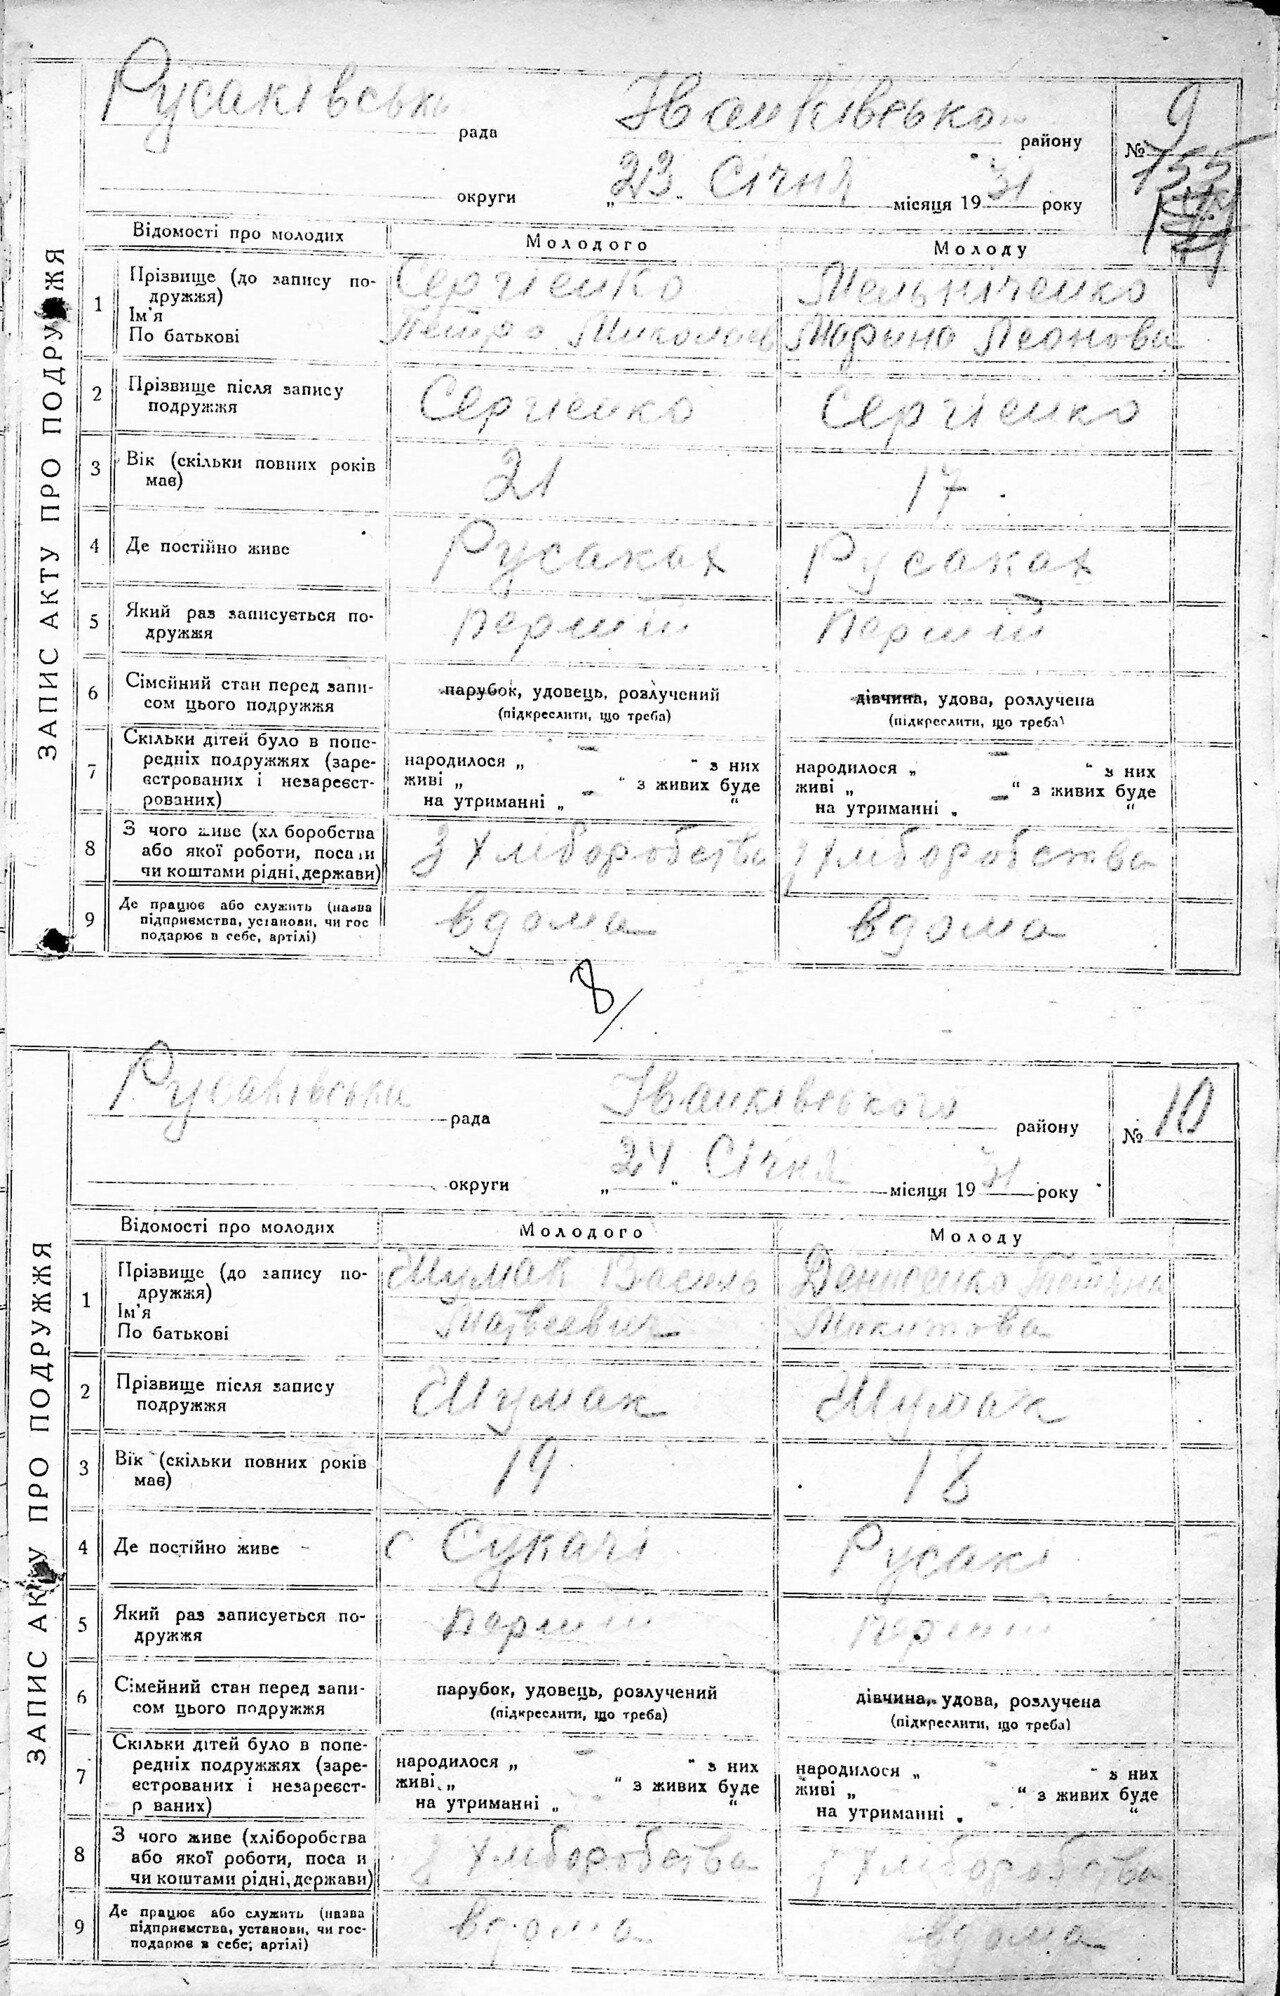 ЗАПИС АКТУ ПРО ПОДРУЖЖЯ
Русаківська рада Іванківсько району № 9
155
округи „23" Січня місяця 1931 року
Відомості про молодих Молодого Молоду
1 Прізвище (до запису по-
дружжя) Сергієнко Мельніченко
Ім'я
По батькові Петро Миколаєв Марина Леонова
2 Прізвище після запису
подружжя Сергієнко Сергієнко
3 Вік (скільки повних років
має) 21 17
4 Де постійно живе Русаках Русаках
5 Який раз записується по-
дружжя перший перший
6 Сімейний стан перед запи-
сом цього подружжя
парубок, удовець, розлучений дівчина, удова, розлучена
(підкреслити, що треба) (підкреслити, що треба)
7 Скільки дітей було в попе-
редніх подружжях (заре-
єстрованих і незареєст-
рованих)
народилося „ — " з них народилося „ — " з них
живі „ — " з живих буде живі „ — " з живих буде
на утриманні „ " на утриманні „ "
8 З чого живе (хл боробства
або якої роботи, посади
чи коштами рідні, держави) з хліборобства з хліборобства
9 Де працює або служить (назва
підприємства, установи, чи гос
подарює в себе, артілі) вдома вдома
8/
ЗАПИС АКТУ ПРО ПОДРУЖЖЯ
Русаківська рада Іванківського району № 10
округи „24" Січня місяця 1931 року
Відомості про молодих Молодого Молоду
1 Прізвище (до запису по-
дружжя) Шумак Василь Денисенко Тетяна
Ім'я
По батькові Матвеевич Микитова
2 Прізвище після запису
подружжя Шумак Шумак
3 Вік (скільки повних років
має) 19 18
4 Де постійно живе с Сукачі Русакі
5 Який раз записується по-
дружжя перший перший
6 Сімейний стан перед запи-
сом цього подружжя
парубок, удовець, розлучений дівчина, удова, розлучена
(підкреслити, що треба) (підкреслити, що треба)
7 Скільки дітей було в попе-
редніх подружжях (заре-
єстрованих і незареєст-
р ваних)
народилося „ — " з них народилося „ " з них
живі „ " з живих буде живі „ " з живих буде
на утриманні „ " на утриманні „ "
8 З чого живе (хліборобства
або якої роботи, поса и
чи коштами рідні, держави) з хліборобства з хліборобства
9 Де працює або служить (назва
підприємства, установи, чи гос-
подарює в себе; артілі) вдома вдома